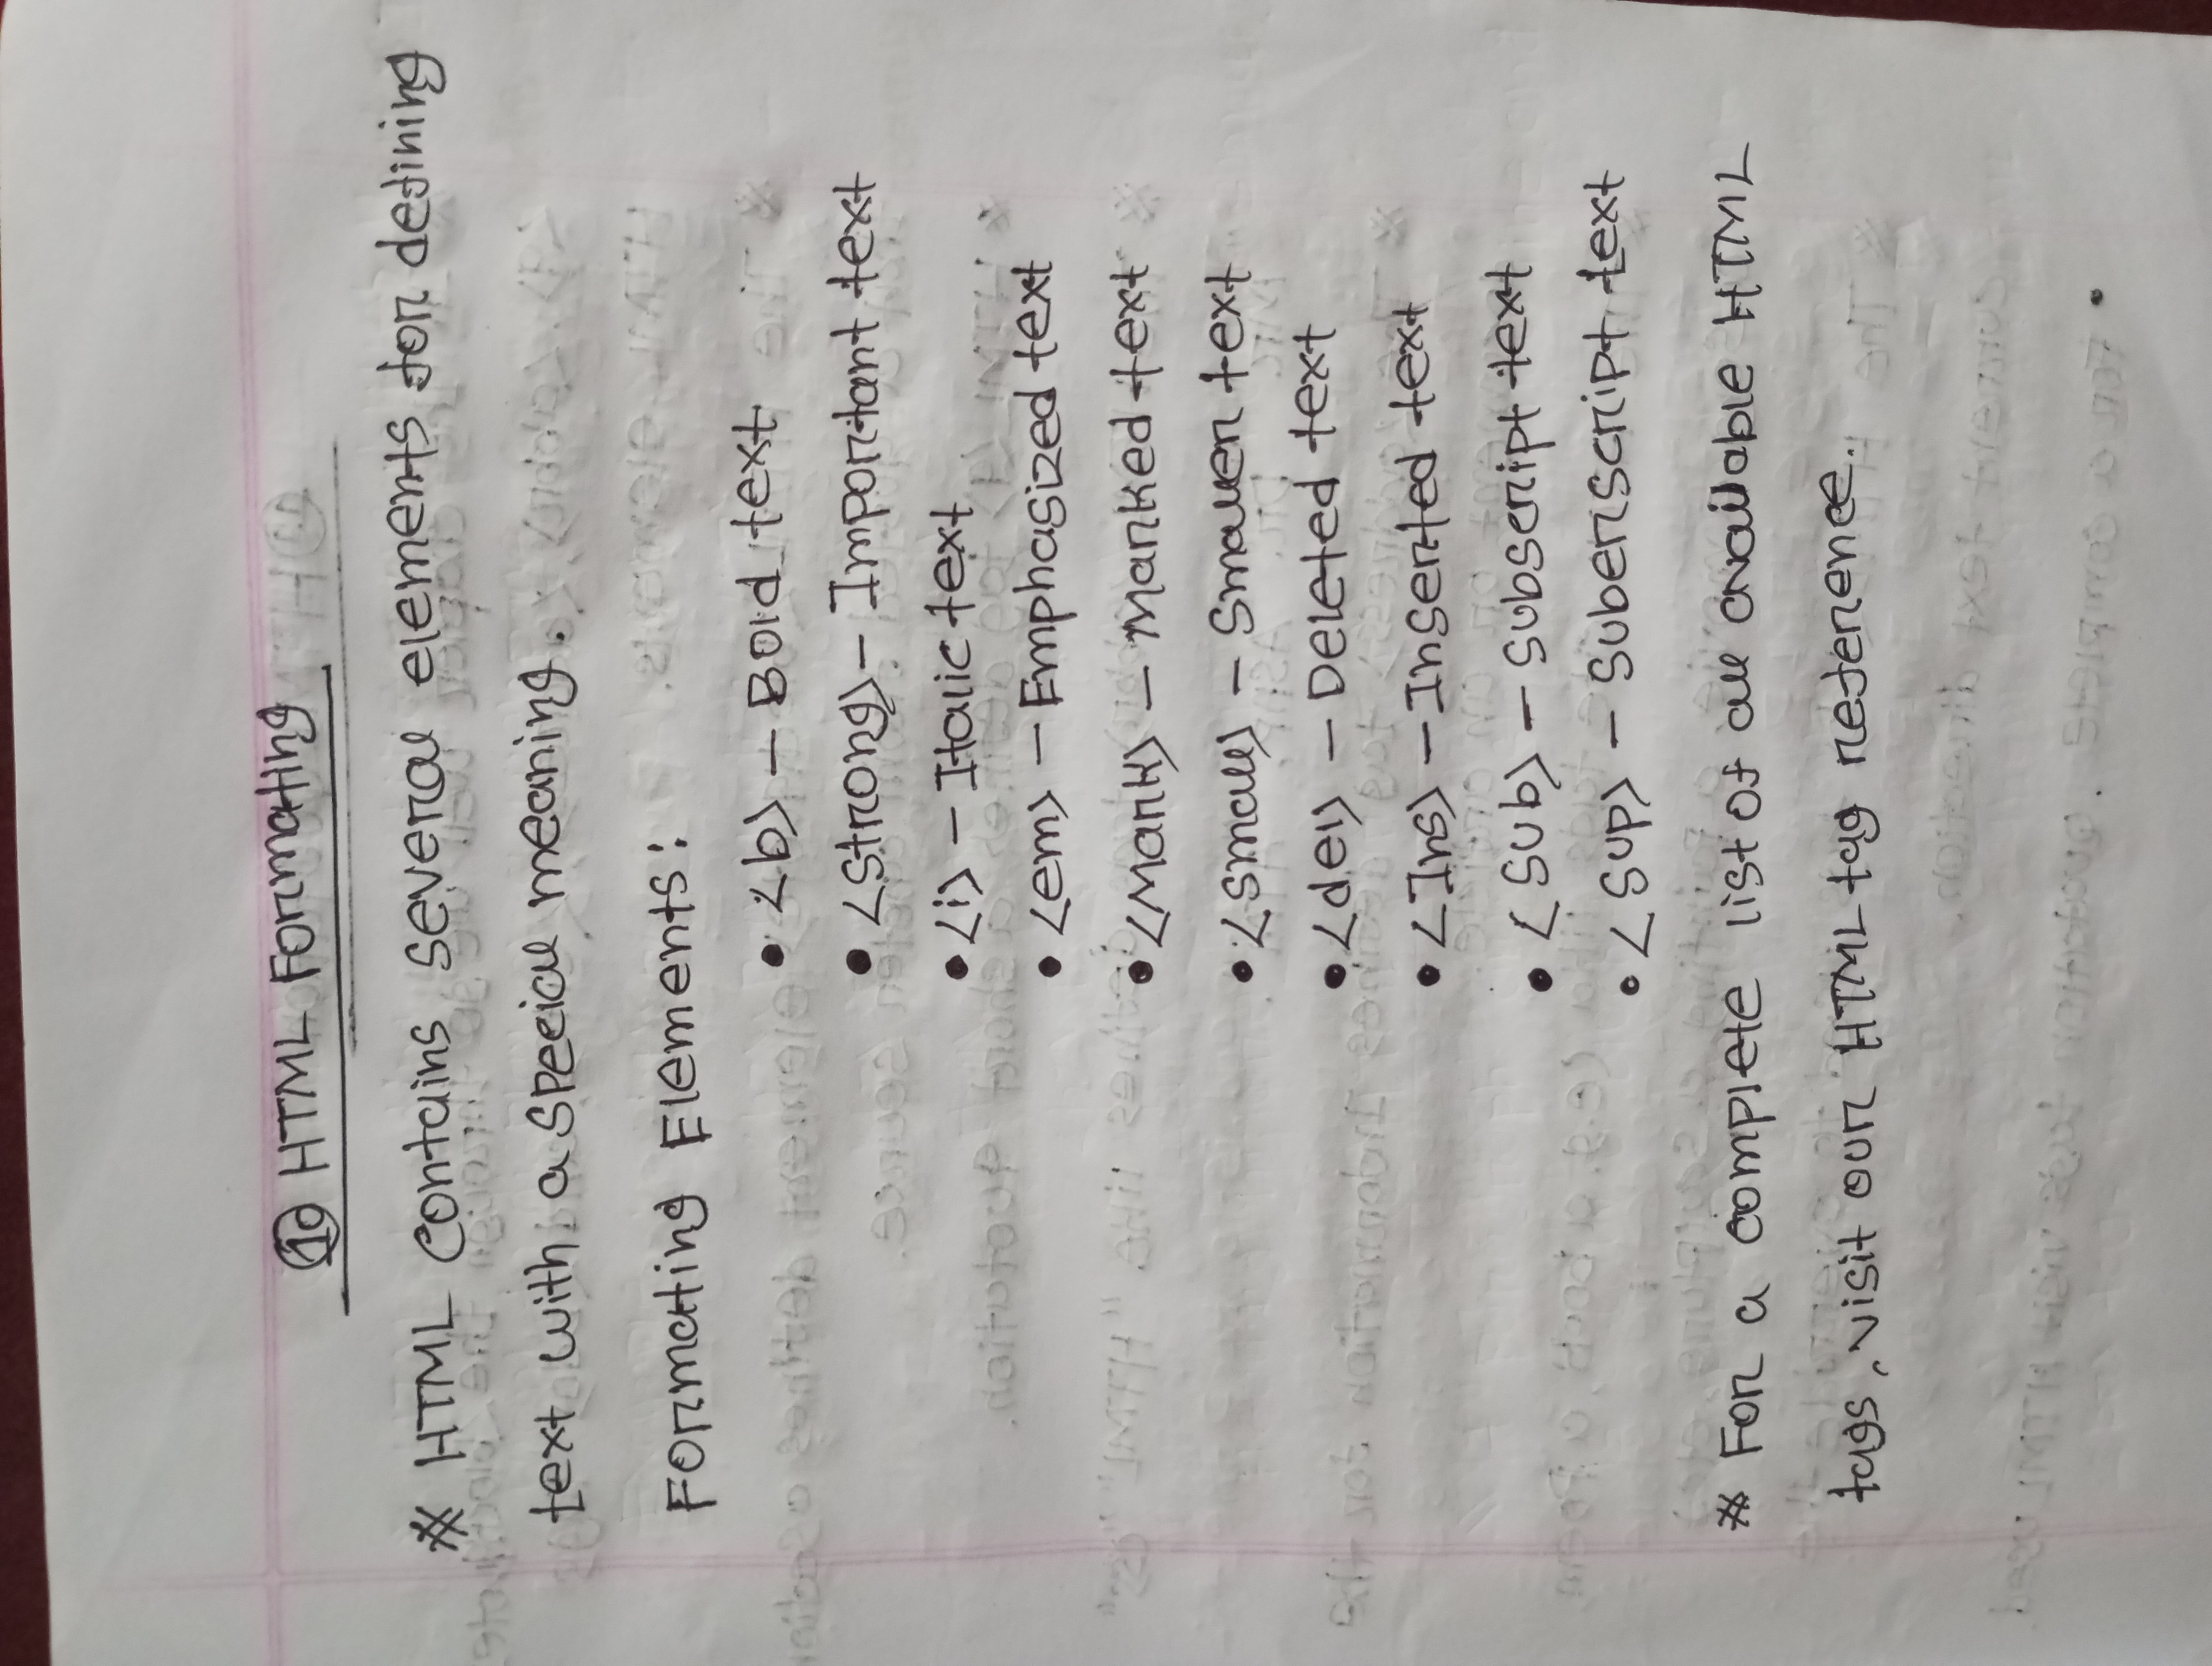 ⑩ HTML Formating
* HTML contains several elements for defining
text with a special meaning.
Formating Elements:
• <b> – Bold text
• <strong> – Important text
• <i> – Italic text
• <em> – Emphasized text
• <Mark> – Marked text
• <small> – Smaller text
• <del> – Deleted text
• <Ins> – Inserted text
• <Sub> – Subscript text
• <Sup> – Suberscript text
* For a complete list of all available HTML
tags, visit our HTML tag reference.